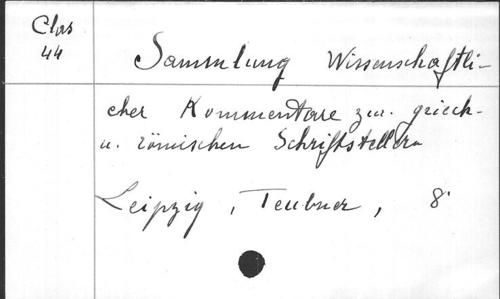 Clas
44
Sammlung Wissenschaftli-
cher Kommentare zu. griech-
u. römischen Schriftstellern
Leipzig, Teubner, 8°